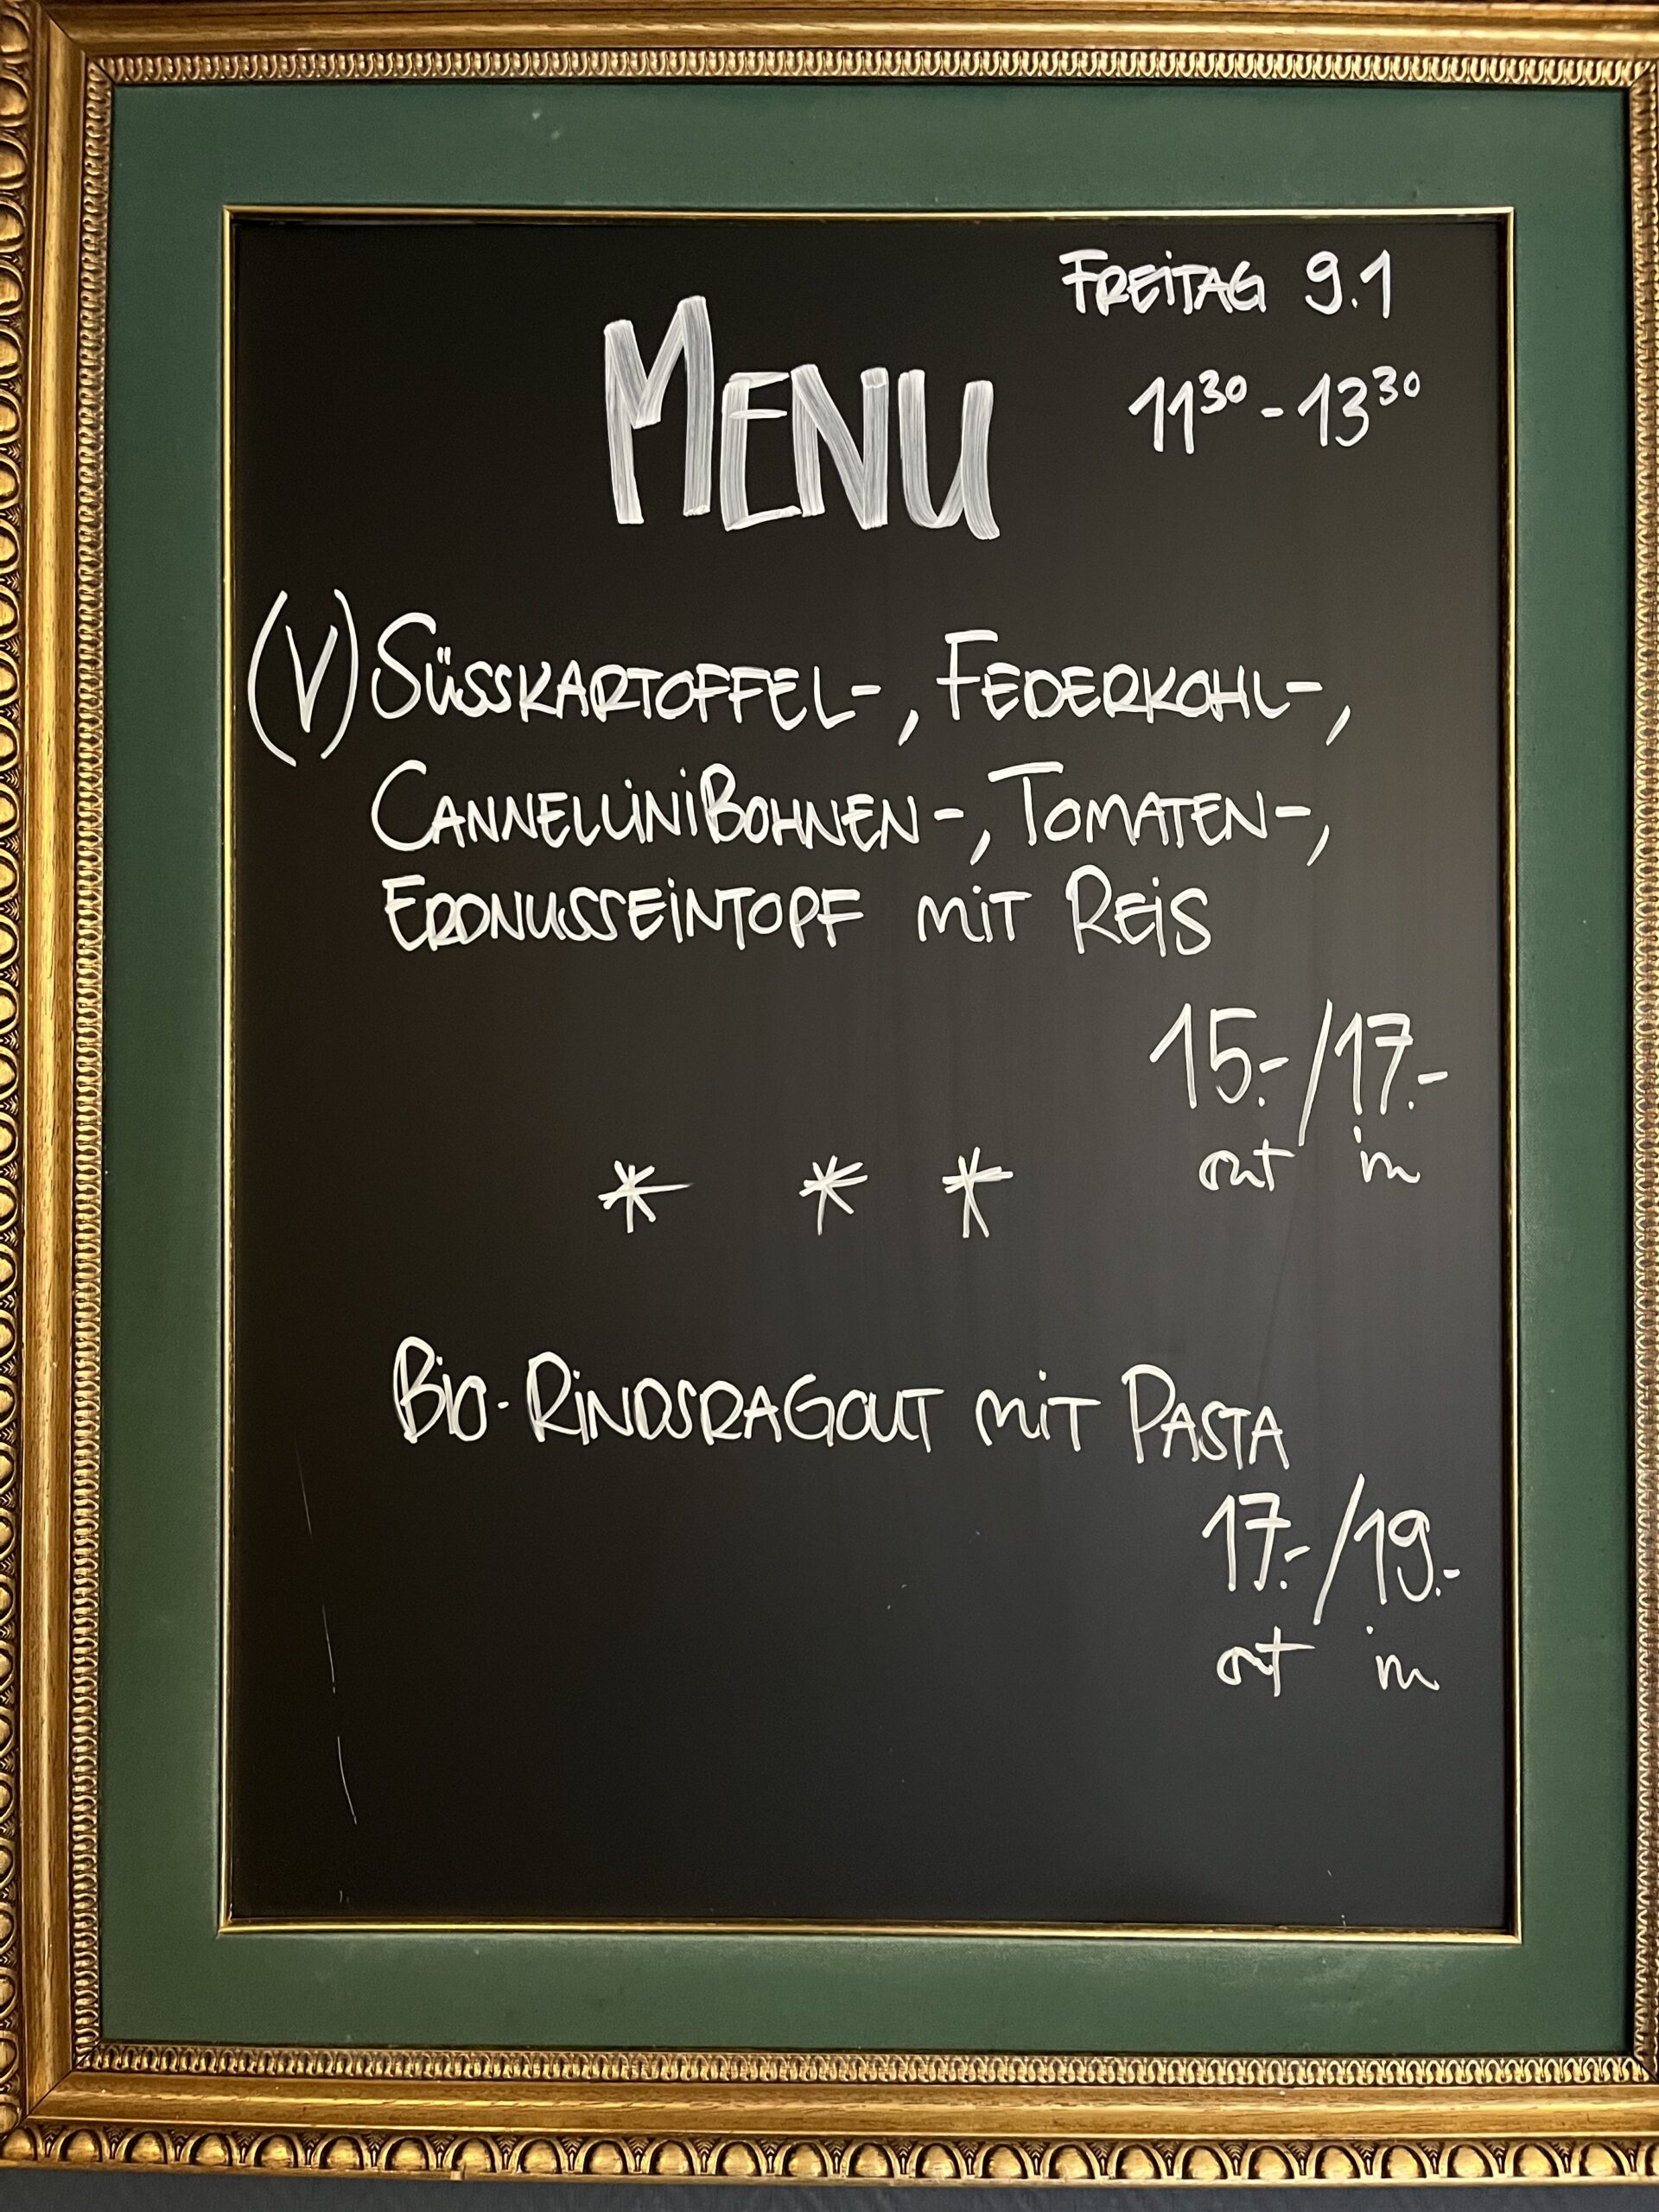 FREITAG 9.1
11³⁰ - 13³⁰
MENU
(V) SÜSSKARTOFFEL-, FEDERKOHL-,
CANNELLINIBOHNEN-, TOMATEN-,
ERDNUSSEINTOPF MIT REIS
15.-/17.-
out in
* * *
BIO-RINDSRAGOUT MIT PASTA
17.-/19.-
out in